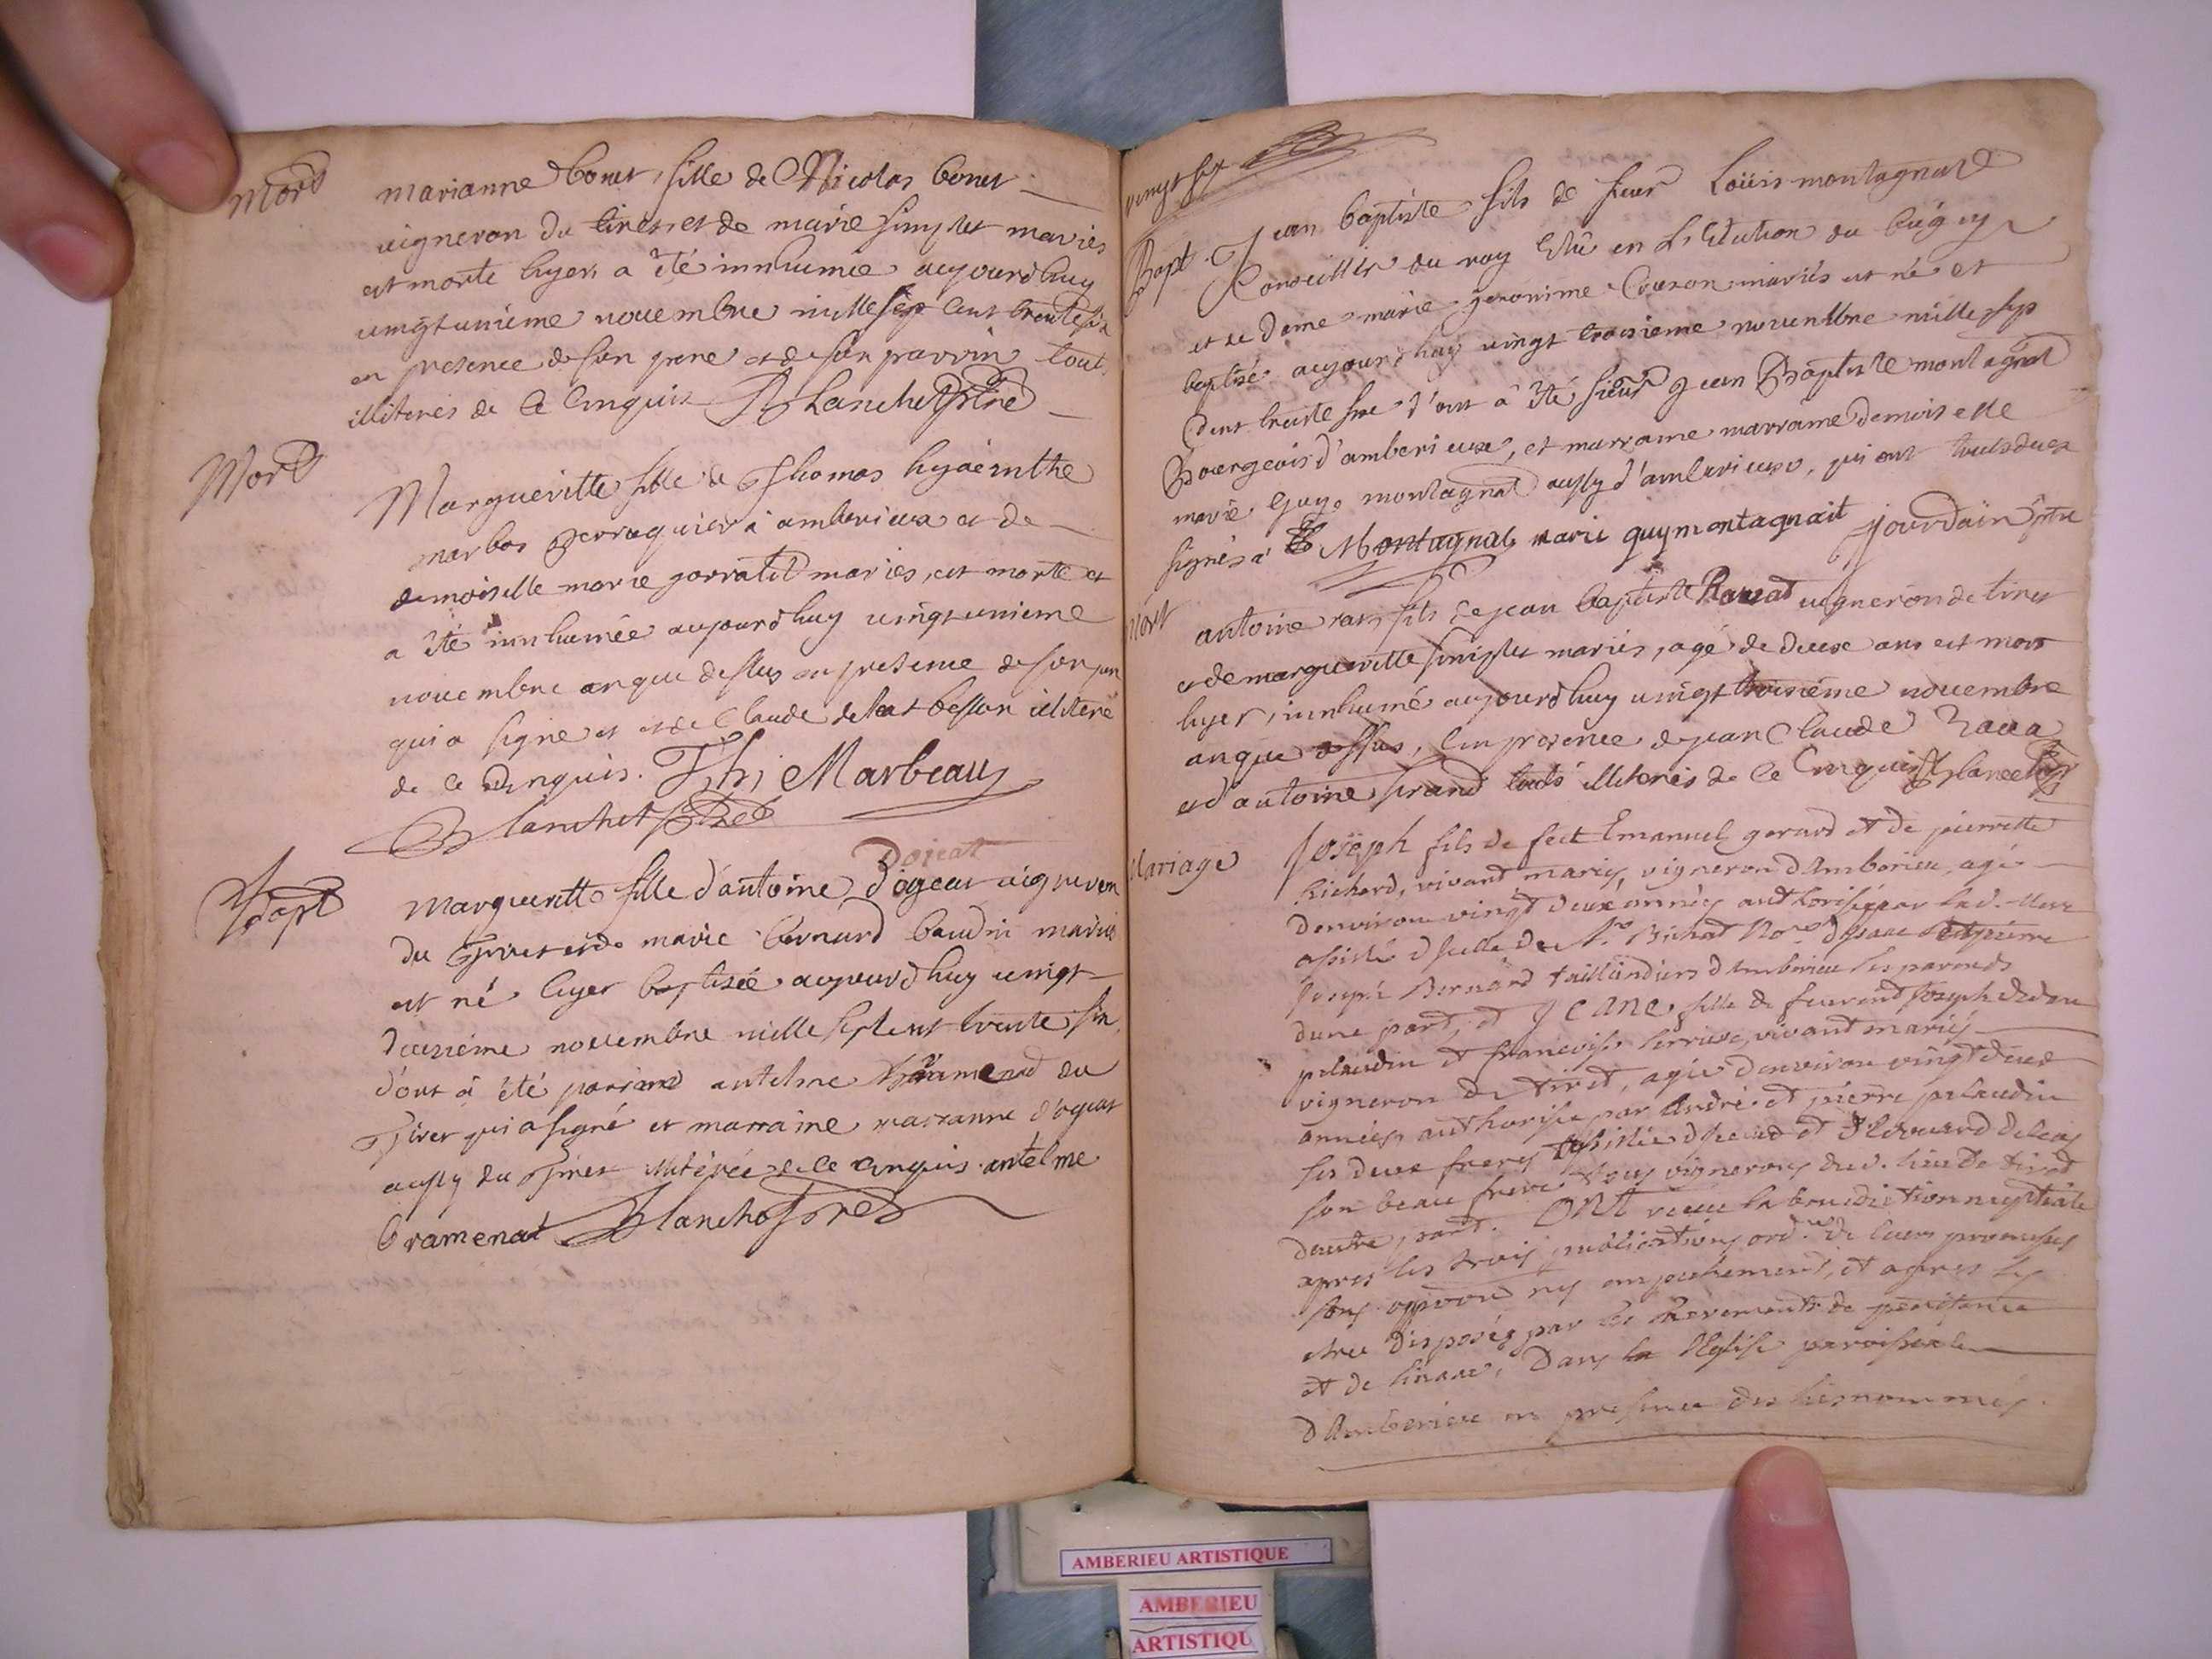 Mort
marianne bonet fille de Nicolas bonet
vigneron du tiret et de marie simplet mariés
est morte hyer a été innhumée aujourdhuy
vingtunieme novembre mille sept cent trente six
en presence de son pere et de son parrin tout
illiterés de ce Enquis Blanchet ptre
Mort
Margueritte fille de Thomas hyacinthe
marbos perruquier à amberieux et de
demoiselle marie garratel mariés, est morte et
a été innhumée aujourdhuy vingtunieme
novembre an que dessus en presence de son pere
qui a signé et et de Claude besson illiteré
de ce Enquis. Th; Marbeau
Blanchet ptre
Bapt
Dojeat
Margueritte fille d'antoine d'ogeat vigneron
du Tiret et de marie bernard baudin mariés
est né hyer baptisée aujourdhuy vingt
deuxieme novembre mille sept cent trente six
d'ont à été parrain antelme bramenad du
Tiret qui a signé et marraine marianne d'ogeat
aussy du Tiret illiterée de ce enquis antelme
bramenat Blanchet ptre
vingt six
Bapt
Jean baptiste fils de sieur Loüis montagnat
Conseiller du roy Elû en L'Election du bugey
et de dame marie geronime Cruson mariés est né et
baptisé aujourdhuy vingt troisieme novembre mille sept
Cent trente six d'ont à été sieur Jean Baptiste montagnat
Bourgeois d'amberieux, et marraine marraine demoiselle
marie Guy montagnat aussy d'amberieux, qui ont touts deux
signés Montagnat marie guy montagnait jourdain ptre
mort
antoine rav fils de jean baptiste Ravat vigneron de tiret
et de margueritte simplet mariés, agé de deux ans est mort
hyer, innhumé aujourdhuy vingt troisieme novembre
an que dessus, En presence de jean Claude Rava
et d'antoine ferrand touts illiterés de ce Enquis Blanchet ptre
Mariage
Joseph fils de feu Emanuel gerard et de pierrette
Richard, vivant mariés, vigneron d'Amberieu, agé
denviron vingt deux années authorisé par lad. Mere
assisté d'icelle, de Me Bichat Nore d'Isaac et pierre
Joseph Bernard taillandiers d'Amberieu ses parents
dune part, et JEANE, fille de Joseph
palaudin et francoise vivant mariés
vigneron de tiret, agée denviron vingt deux
années authorisée par André et pierre palaudin
ses deux freres assistée d'iceux et d'Edouard
son beau frere tous vignerons dud. lieu de tiret
dautre part. ONt receu la benediction nuptiale
apres les trois publications ordres de leurs promesses
sans opposion ny empechement, et apres s'y
etre disposés par les Sacrements de penitence
et de lieucar, Dans la l'Eglise paroissiale
d'Amberieux en presence des susnommés.
AMBERIEU ARTISTIQUE
AMBERIEU
ARTISTIQU